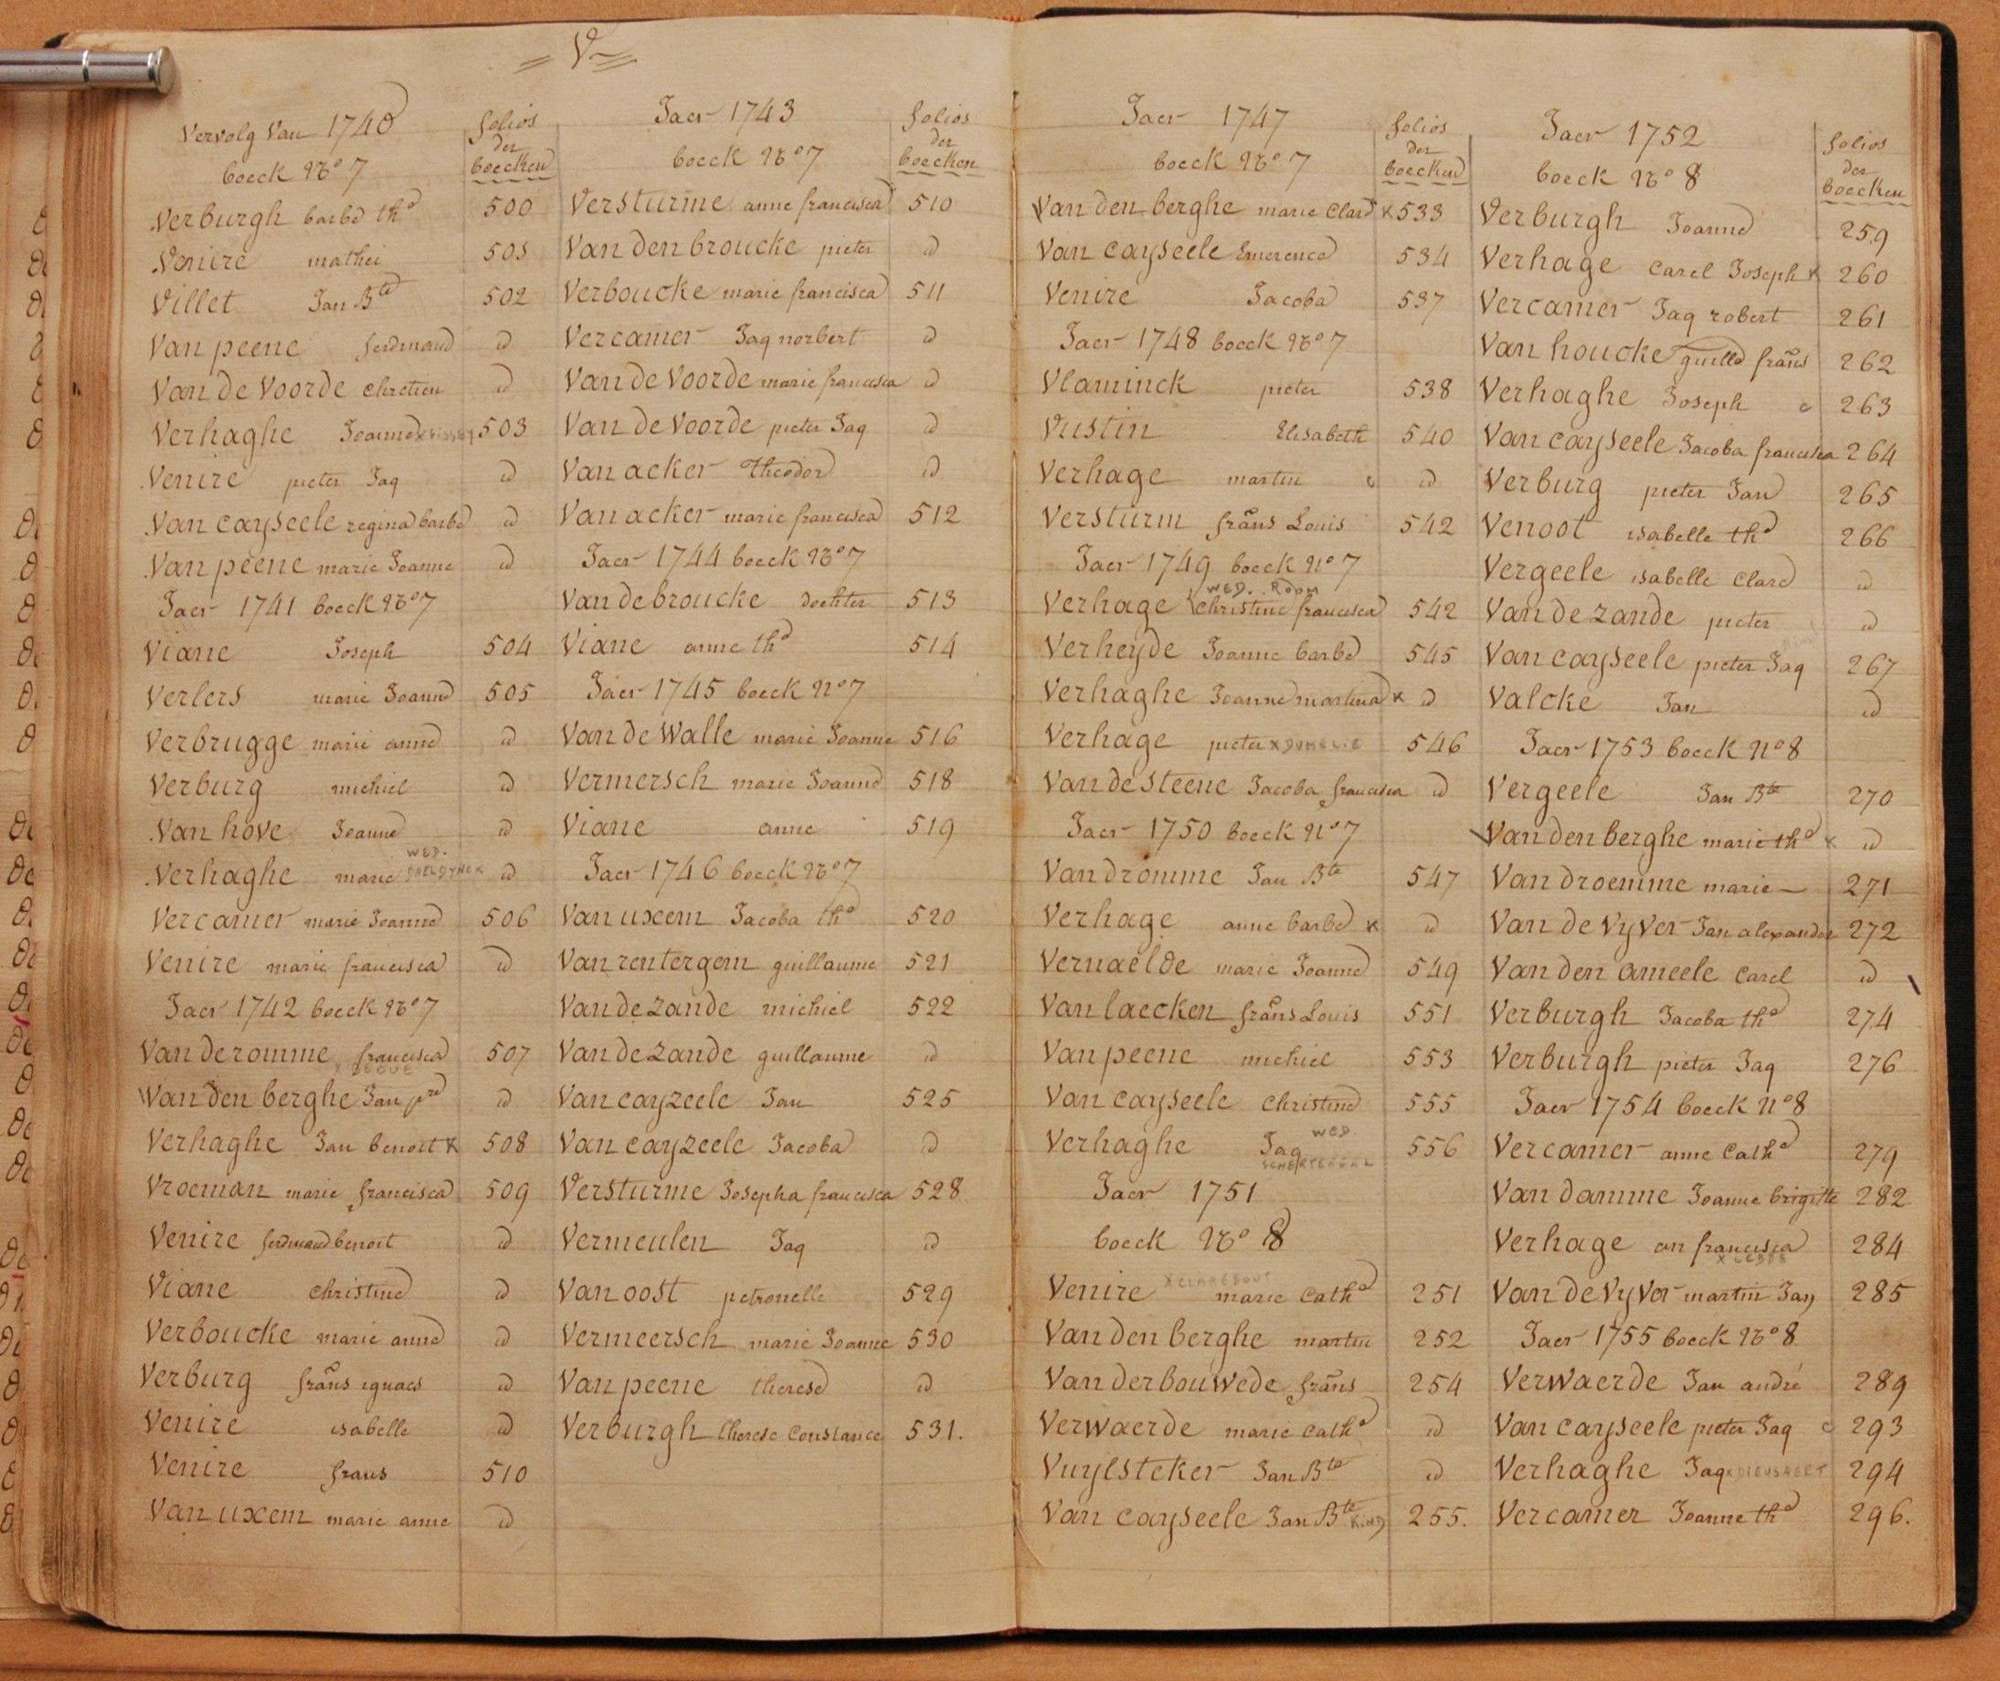 = V =
Vervolg Van 1740
boeck No 7
folios
der
boecken
Verburgh barbe thᵉ 500
Venire mathei 501
Villet Jan Bte 502
Van peene ferdinand id
Van de Voorde chretien id
Verhaghe Joanne 503
Venire pieter Jaq id
Van cayseele regina barbe id
Van peene marie Joanne id
Jaer 1741 boeck No 7
Viane Joseph 504
Verlers marie Joanne 505
Verbrugge marie anne id
Verburg michiel id
Van hove Joanne id
WED.
Verhaghe marie id
Vercamer marie Joanne 506
Venire marie francisca id
Jaer 1742 boeck No 7
Van deromme francisca 507
Van den berghe Jan pre id
Verhaghe Jan benoit x 508
Vroeman marie francisca 509
Venire ferdinand benoit id
Viane christine id
Verboucke marie anne id
Verburg frans ignaes id
Venire isabelle id
Venire frans 510
Van uxem marie anne id
Jaer 1743
boeck No 7
folios
der
boecken
Versturme anne francisca 510
Van den broucke pieter id
Verboucke marie francisca 511
Vercamer Jaq norbert id
Van de Voorde marie francisca id
Van de Voorde pieter Jaq id
Van acker Theodor id
Van acker marie francisca 512
Jaer 1744 boeck No 7
Van de broucke dochter 513
Viane anne thᵉ 514
Jaer 1745 boeck No 7
Van de Walle marie Joanne 516
Vermersch marie Joanne 518
Viane anne 519
Jaer 1746 boeck No 7
Van uxem Jacoba thᵉ 520
Van rentergem guillaume 521
Van de zande michiel 522
Van de zande guillaume id
Van cayzeele Jan 525
Van cayzeele Jacoba id
Versturme Josepha francisca 528
Vermeulen Jaq id
Van oost petronelle 529
Vermeersch marie Joanne 530
Van peene therese id
Verburgh therese Constance 531.
Jaer 1747
boeck No 7
folios
der
boecken
Van den berghe marie Clare x 533
Van cayseele Emerence 534
Venire Jacoba 537
Jaer 1748 boeck No 7
Vlaminck pieter 538
Vustin Elisabeth 540
Verhage martin id
Versturm frans Louis 542
Jaer 1749 boeck No 7
WED. ROOM
Verhage christine francisca 542
Verheyde Joanne barbe 545
Verhaghe Joanne martina x id
Verhage pieter 546
Van de steene Jacoba francisca id
Jaer 1750 boeck No 7
Van dromme Jan Bte 547
Verhage anne barbe x id
Vernaelde marie Joanne 549
Van laecken frans Louis 551
Van peene michiel 553
Van cayseele christine 555
WED.
Verhaghe Jaq 556
Jaer 1751
boeck No 8
X CLAREBOUT
Venire marie cathᵉ 251
Van den berghe martin 252
Van der bouwede frans 254
Verwaerde marie cathᵉ id
Vuylsteker Jan Bte id
Van cayseele Jan Bte KIND 255.
Jaer 1752
boeck No 8
folios
der
boecken
Verburgh Joanne 259
Verhage carel Joseph x 260
Vercamer Jaq robert 261
Van houcke guille frans 262
Verhaghe Joseph 263
Van cayseele Jacoba francisca 264
Verburg pieter Jan 265
Venoot isabelle thᵉ 266
Vergeele isabelle clare id
Van de zande pieter id
Van cayseele pieter Jaq 267
Valcke Jan id
Jaer 1753 boeck No 8
Vergeele Jan Bte 270
Van den berghe marie thᵉ x id
Van droemme marie 271
Van de Vyver Jan alexander 272
Van den ameele carel id
Verburgh Jacoba thᵉ 274
Verburgh pieter Jaq 276
Jaer 1754 boeck No 8
Vercamer anne Cathᵉ 279
Van damme Joanne brigitte 282
Verhage an francisca 284
Van de Vyver martin Jan 285
Jaer 1755 boeck No 8
Verwaerde Jan andré 289
Van cayseele pieter Jaq 293
Verhaghe Jaq 294
Vercamer Joanne thᵉ 296.